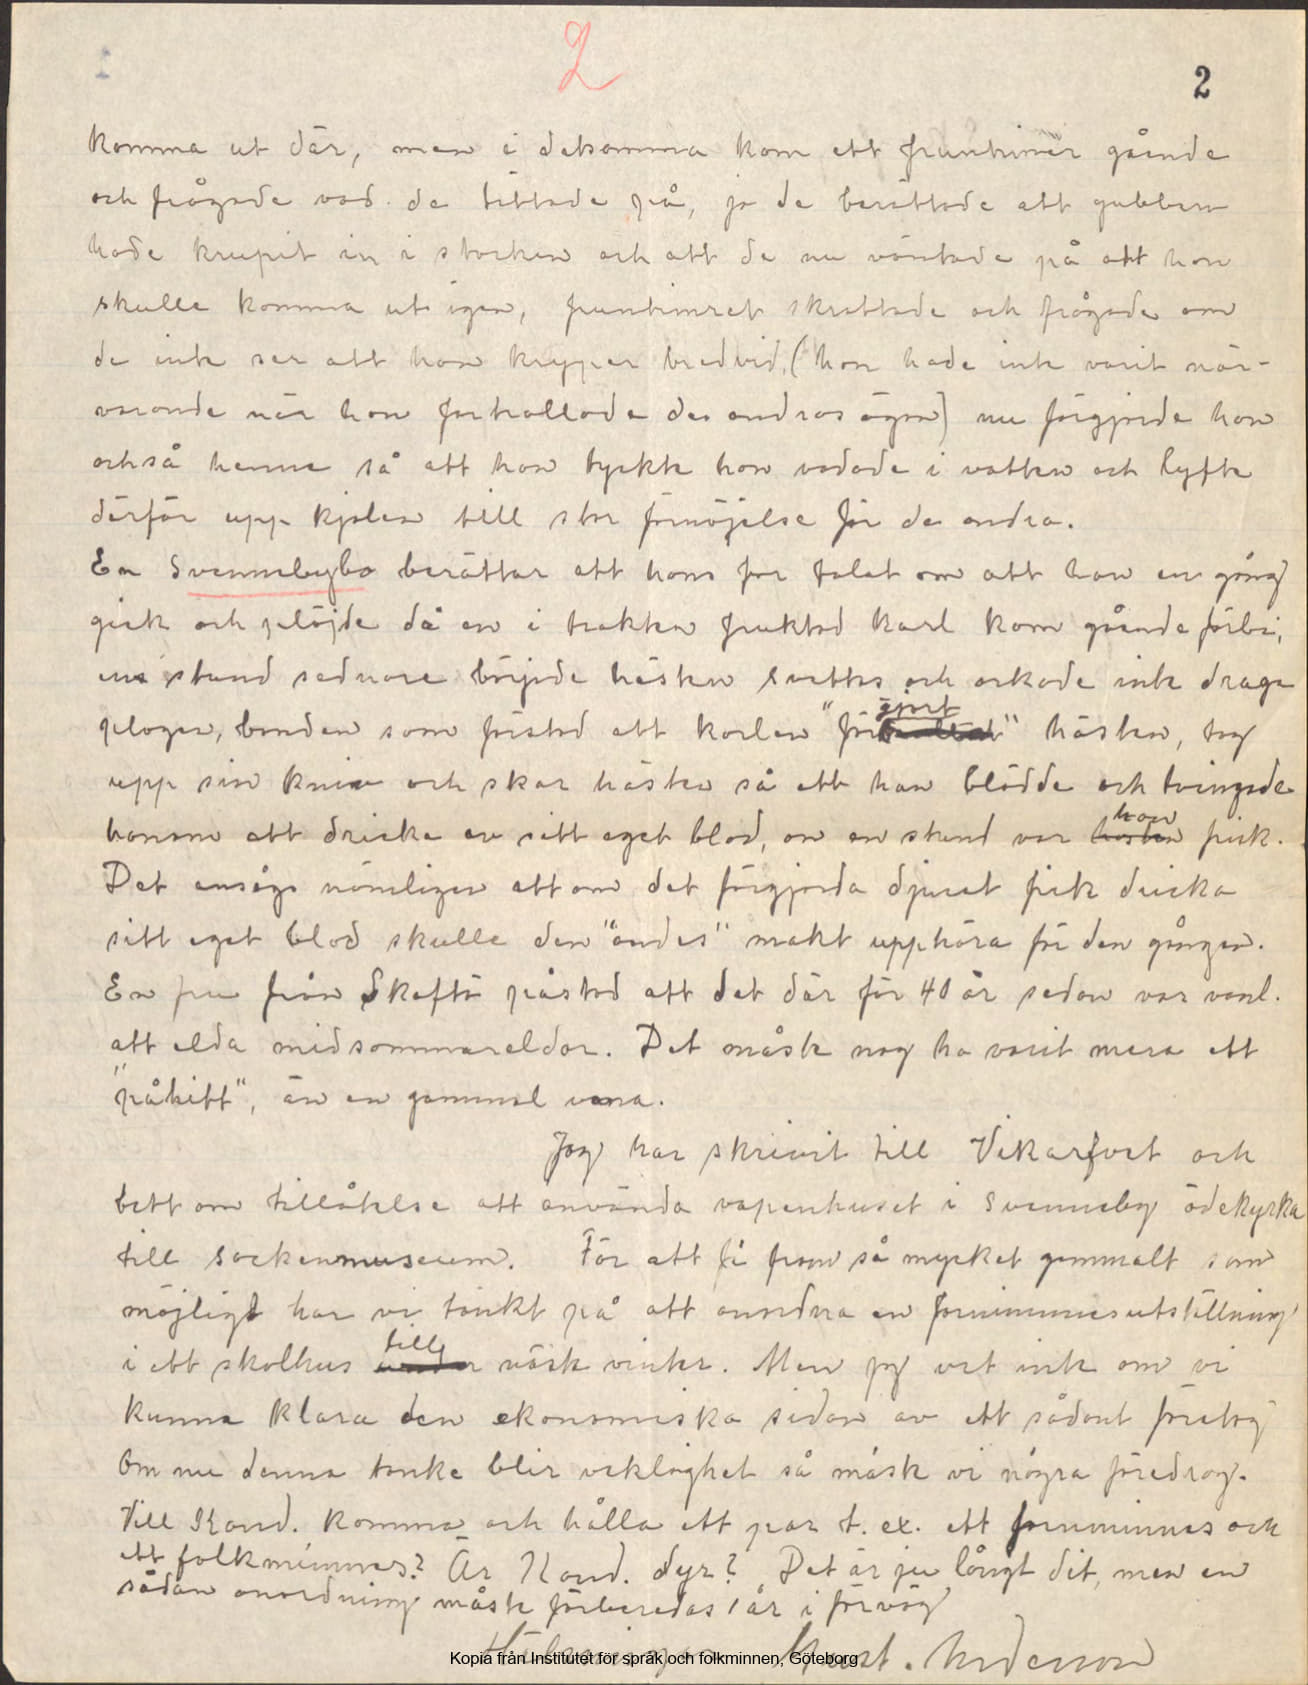 2
2
komma ut där, men i detsamma kom ett fruntimer gående
och frågade vad de tittade på, jo de berättade att gubben
hade krupit in i stocken och att de nu väntade på att han
skulle komma ut igen, fruntimret skrattade och frågade om
de inte ser att han kryper bredvid, (hon hade inte varit när-
varande när han förtrollade de andras ögon) nu förgjorde han
också henne så att hon tyckte hon vadade i vatten och lyfte
därför upp kjolen till stor förnöjelse för de andra.
En Svennebybo berättar att hans far talat om att han en gång
gick och plöjde då en i trakten fruktad karl kom gående förbi,
en stund sednare började hästen svettas och orkade inte draga
plogen, bonden som förstod att karlen "förgjort" hästen, tog
upp sin kniv och skar hästen så att han blödde och tvingade
honom att dricka av sitt eget blod, om en stund var han frisk.
Det ansågs nämligen att om det förgjorda djuret fick dricka
sitt eget blod skulle den "ondes" makt upphöra för den gången.
En fru från Skaftö påstod att det där för 40 år sedan var vanl.
att elda midsommareldar. Det måste nog ha varit mera ett
"påhitt", än en gammal vana.
Jag har skrivit till Vikarfvet och
bett om tillåtelse att använda vapenhuset i Svenneby ödekyrka
till sockenmuseum. För att få fram så mycket gammalt som
möjligt har vi tänkt på att anordna en fornminnesutställning
i ett skolhus till näste vinter. Men jag vet inte om vi
kunna klara den ekonomiska sidan av ett sådant företag
Om nu denna tanke blir verklighet så måste vi några föredrag.
Vill Kand. komma och hålla ett par t. ex. ett fornminnes och
ett folkminnes? Är Kand. dyr? Det är ju långt dit, men en
sådan anordning måste förberedas 1 år i förväg
Kopia från Institutet för språk och folkminnen, Göteborg